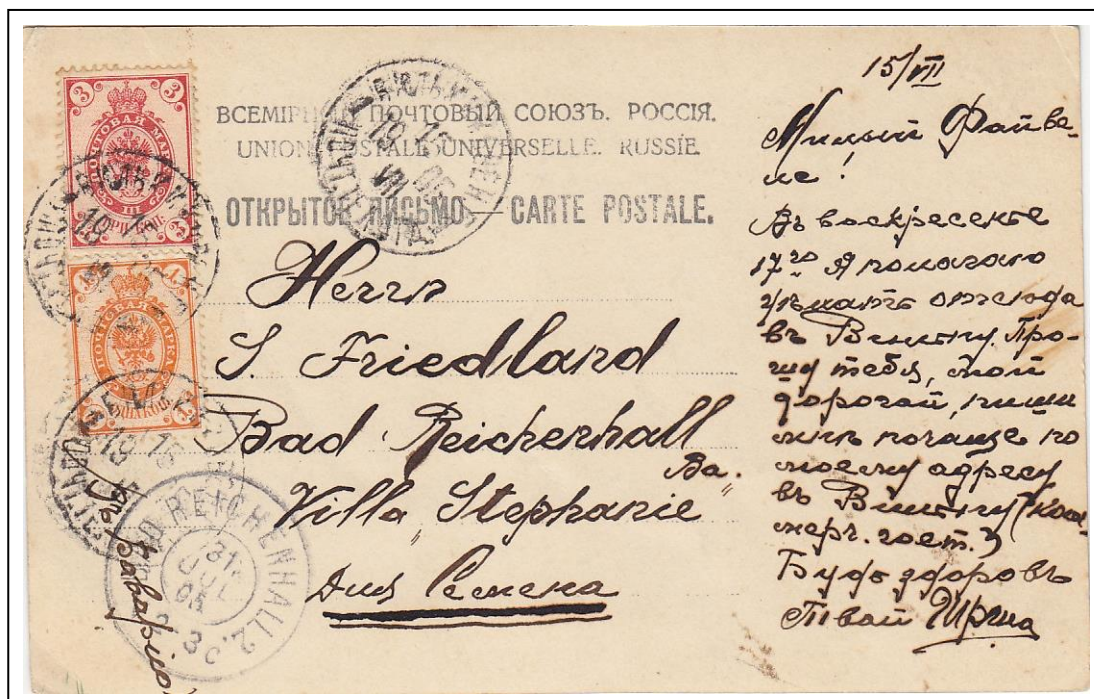 ВСЕМІРН ПОЧТОВЫЙ СОЮЗЪ. РОССІЯ.
UNION POSTALE UNIVERSELLE. RUSSIE
ОТКРЫТОЕ ПИСЬМО — CARTE POSTALE.
3 3
ПОЧТОВАЯ МАРКА
3 3
1 1
ПОЧТОВАЯ МАРКА
1 1
Herrn
S. Friedland
Bad Reichenhall
Ba.
Villa Stephanie
Для Семена
въ Баварію
BAD REICHENHALL 2.
31
JUL
05
2-3 N
15/VII
Милый Файве-
ле!
Въ воскресенье
17го Я полагаю
уѣхать отсюда
въ Вильну. Про-
шу тебя, мой
дорогой, пиши
мнѣ почаще по
моему адресу
въ Вильну (Ком-
мерч. гост.)
Будь здоровъ
Твой